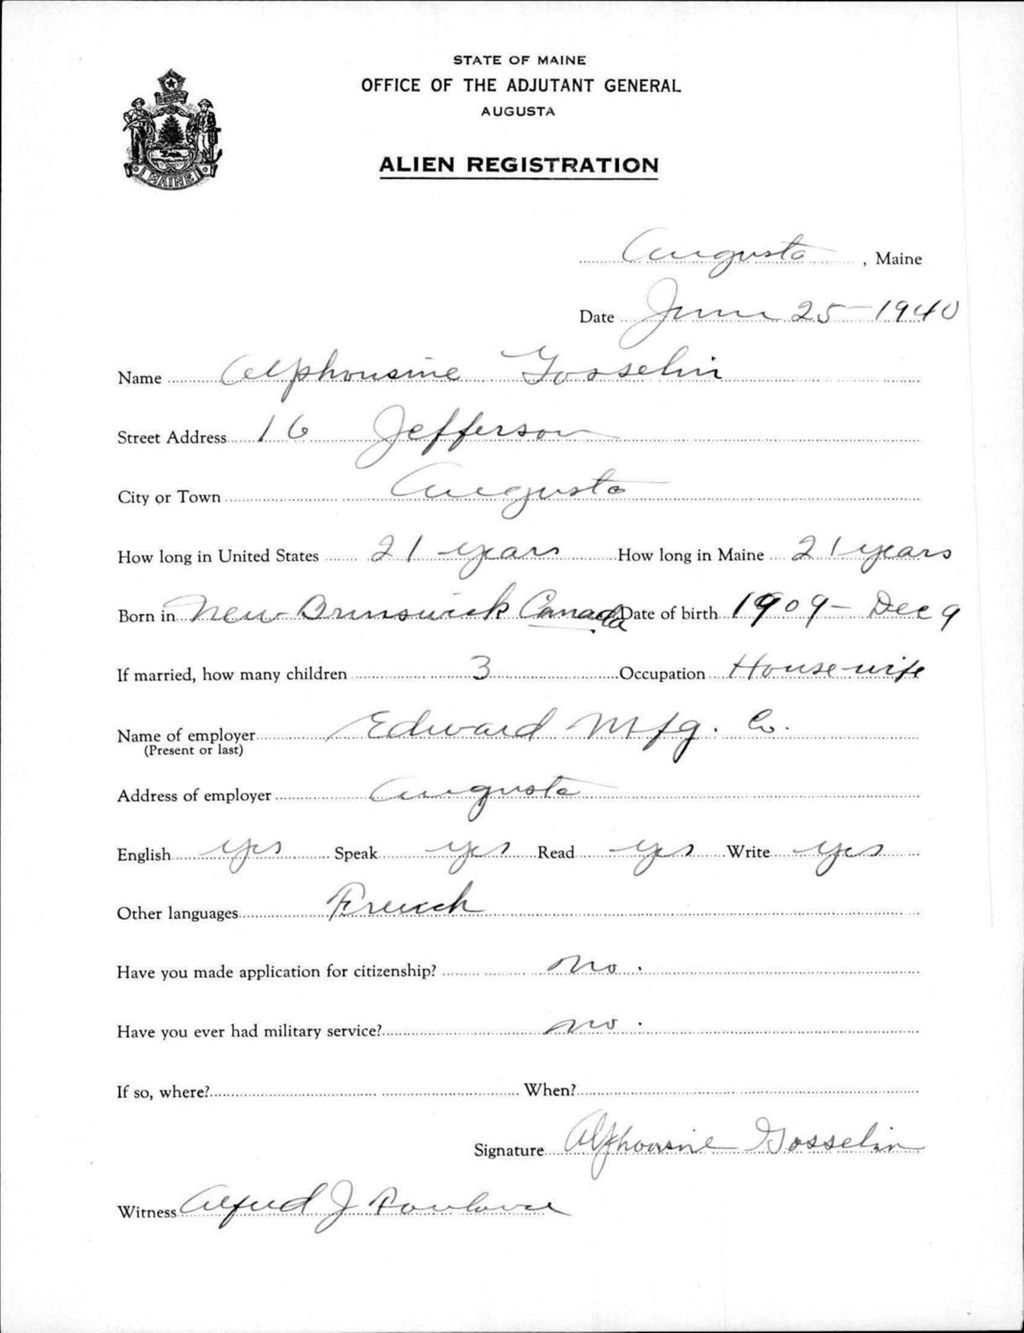 STATE OF MAINE
OFFICE OF THE ADJUTANT GENERAL
AUGUSTA
ALIEN REGISTRATION
MAINE
Augusta, Maine
Date June 25 - 1940
Name Alphonsine Gosselin
Street Address 16 Jefferson
City or Town Augusta
How long in United States 21 years How long in Maine 21 years
Born in New Brunswick Canada Date of birth 1909 - Dec 9
If married, how many children 3 Occupation Housewife
Name of employer Edward Mfg. Co.
(Present or last)
Address of employer Augusta
English yes Speak yes Read yes Write yes
Other languages French
Have you made application for citizenship? no.
Have you ever had military service? no.
If so, where? When?
Signature Alphonsine Gosselin
Witness Alfred J